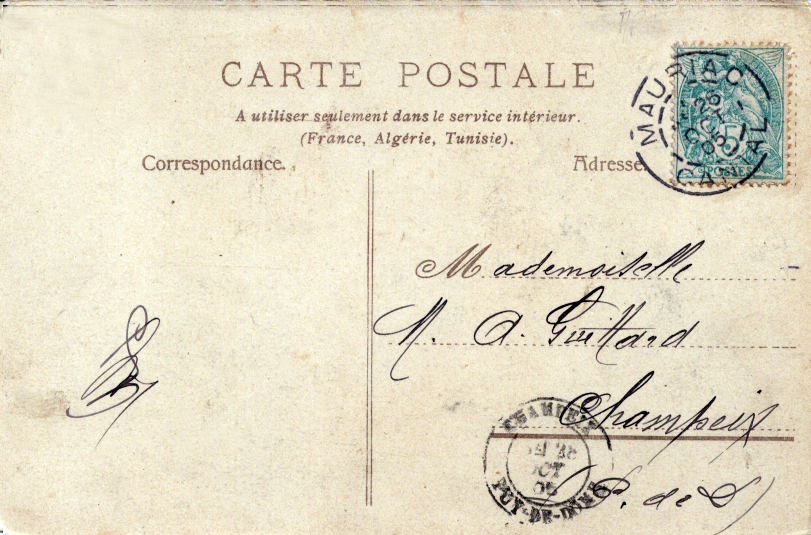 CARTE POSTALE
A utiliser seulement dans le service intérieur.
(France, Algérie, Tunisie).
Correspondance.
Adresse.
MAURIAC
CANTAL
5
POSTES
Mademoiselle
M. A. Guittard
Champeix
(P. de D)
CHAMPEIX
OCT
05
PUY-DE-DÔME